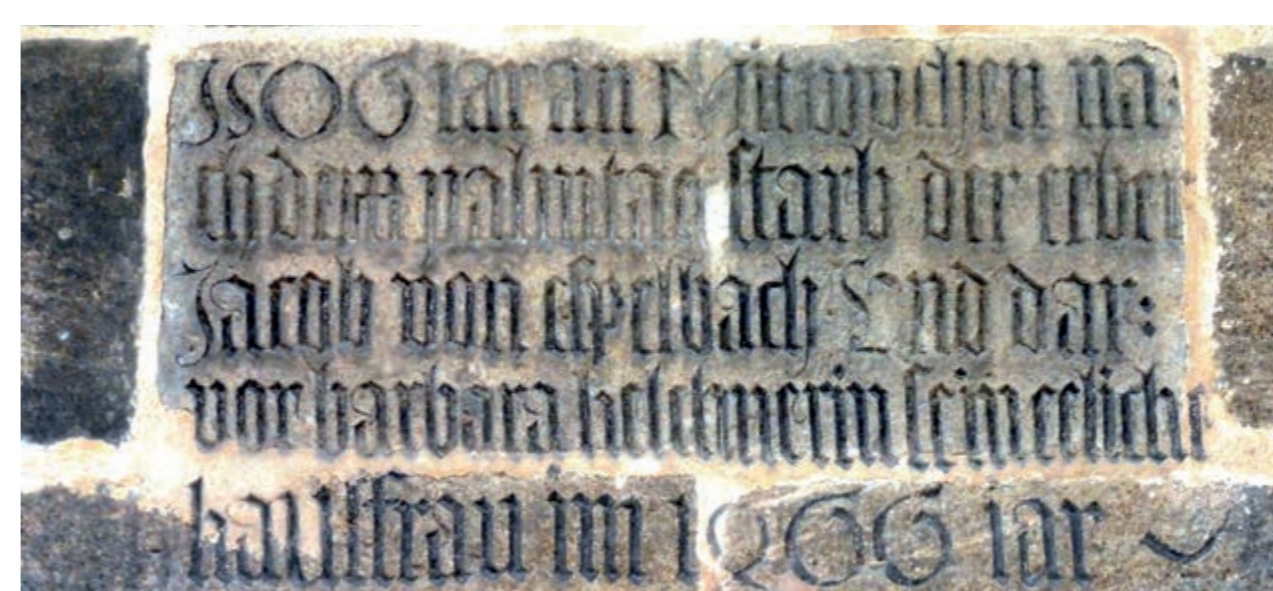 1506 iar an Mitwochen na:
ch dem palmtag starb der erber
Jacob von espelbach Und dar:
vor barbara seineeliche
hausfrau im 1266 iar